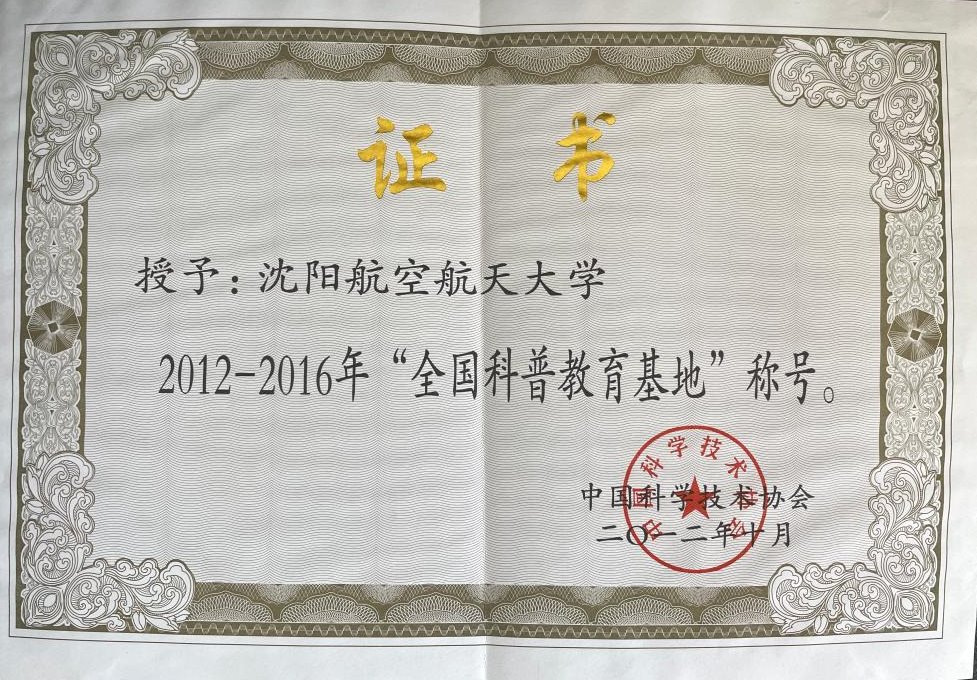 证书
授予：沈阳航空航天大学
2012-2016年“全国科普教育基地”称号。
中国科学技术协会
二〇一二年十月
中国科学技术协会